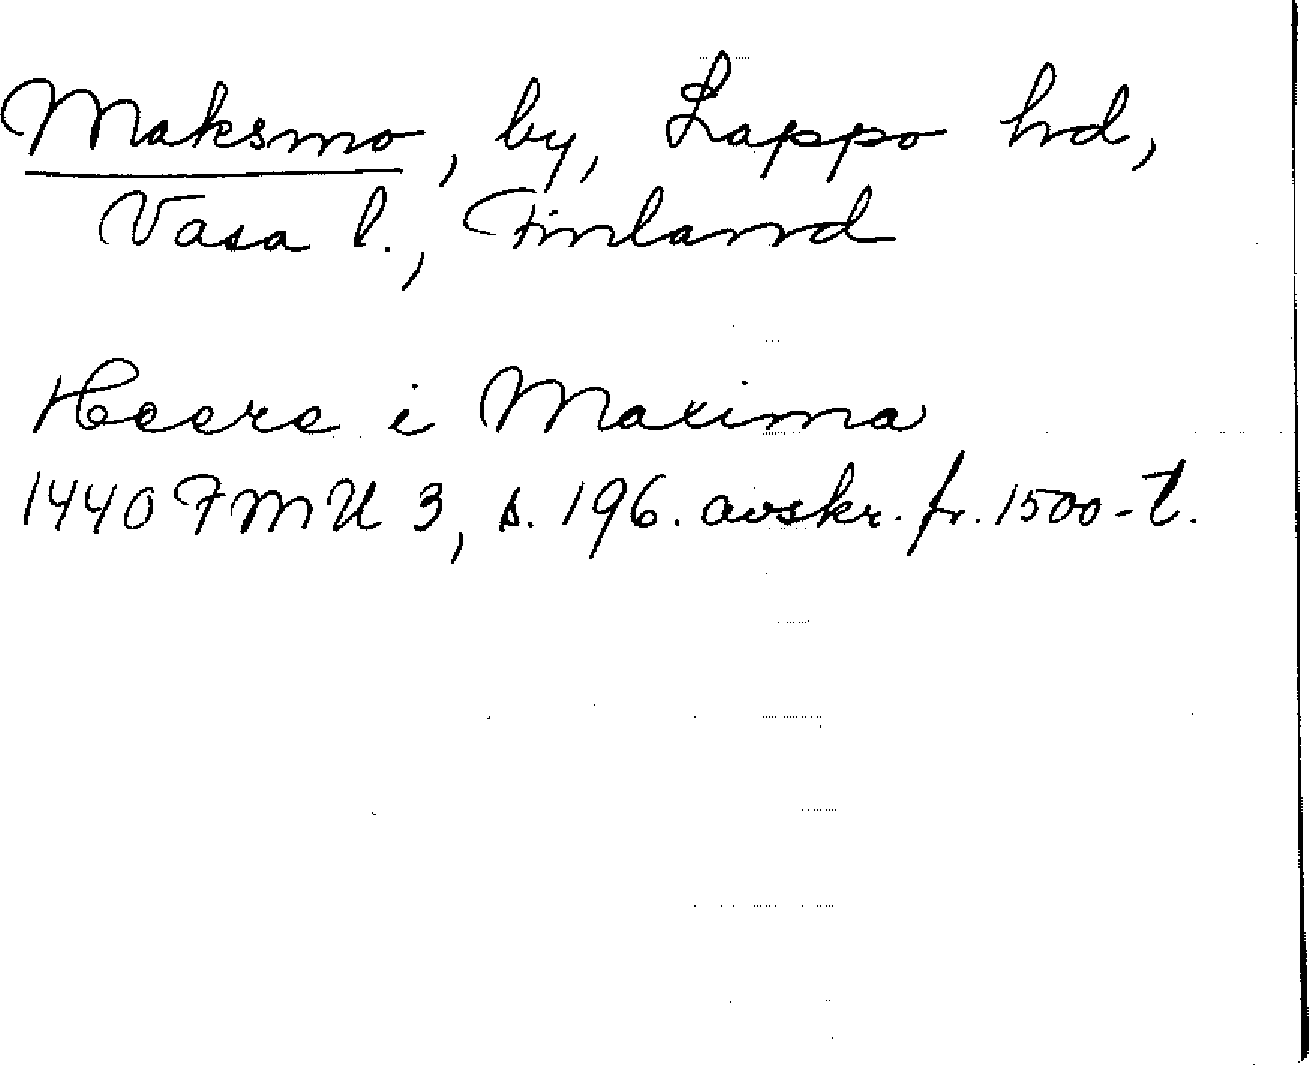 Maksmo, by, Lappo hd,
Vasa l., Finland
i Maxima
1440 FMU 3, s. 196. avskr. fr. 1500-t.